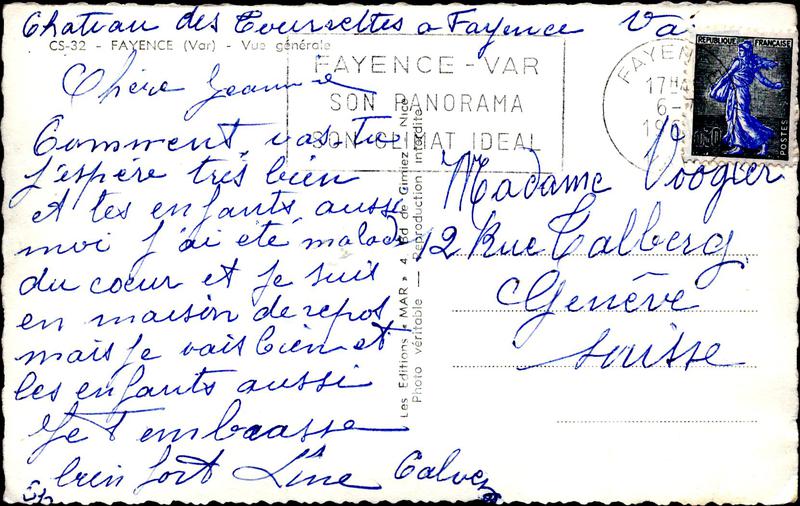 Chateau des Tourrettes a Fayence Va
CS-32 - FAYENCE (Var) - Vue générale
FAYENCE-VAR
SON PANORAMA
SON CLIMAT IDEAL
FAYEN
17H
6-
19
REPUBLIQUE FRANÇAISE
POSTES
Chère Jeannine
Comment vas Tu
J'espère très bien
et tes enfants aussi
moi j'ai été malade
du cœur et je suis
en maison de repos
mais je vais bien et
les enfants aussi
Je T'embrasse
bien fort Line Calvez
Les Editions "MAR" 4, Bd. de Cimiez, Nice
Photo véritable — Reproduction interdite
Madame Voogier
12 Rue Calberg
Genève
Suisse